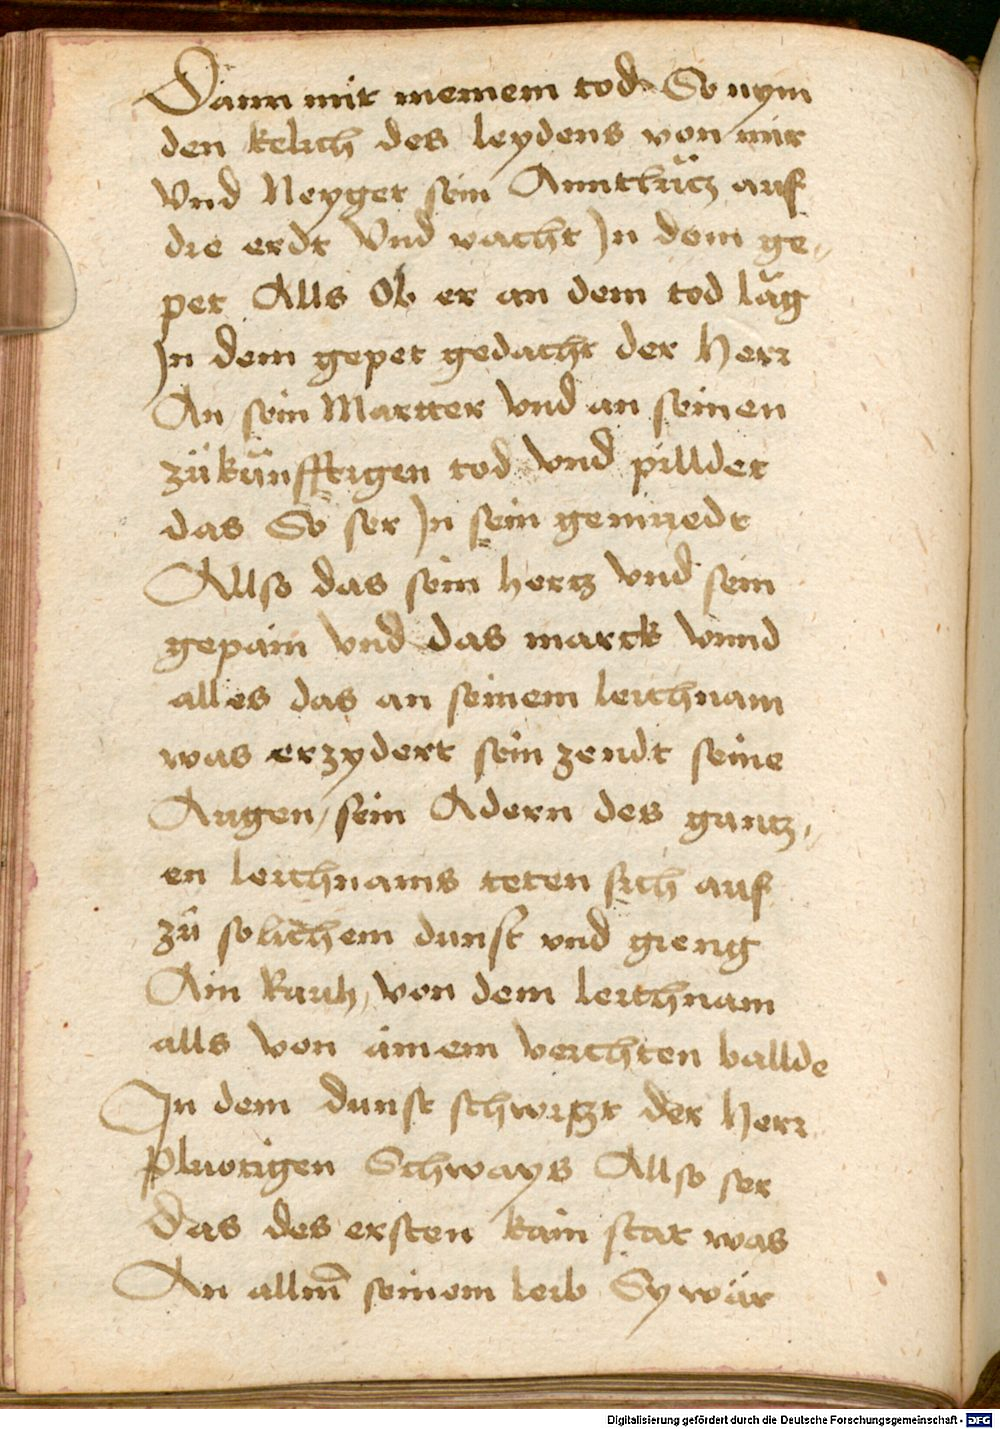 Dann mit meinem tod So nym
den kelich des leydens von mir
Vnd Neyget sein Anntlütz auf
die erdt Vnd vacht Jn dem ge-
pet Alls Ob er an dem tod läg
Jn dem gepet gedacht der Herr
An sein Martter Vnd an seinen
zükünfftigen tod Vnd pilldet
das So ser Jn sein gemuedt
Allso das sein hertz Vnd sein
gepain Vnd das marck Vnnd
alles das an seinem leichnam
was erzydert sein zendt seine
Augen / sein Adern des gantz-
en leichnams teten sich auf
zü solichem dunst vnd gieng
Ain Rauh, von dem leichnam
alls von ainem veichten
In dem dunst schwitzt der Herr
pluotigen Schways Allso ser
das des ersten kain stat was
An allm̄ seinem leib Sy wär
Digitalisierung gefördert durch die Deutsche Forschungsgemeinschaft - DFG